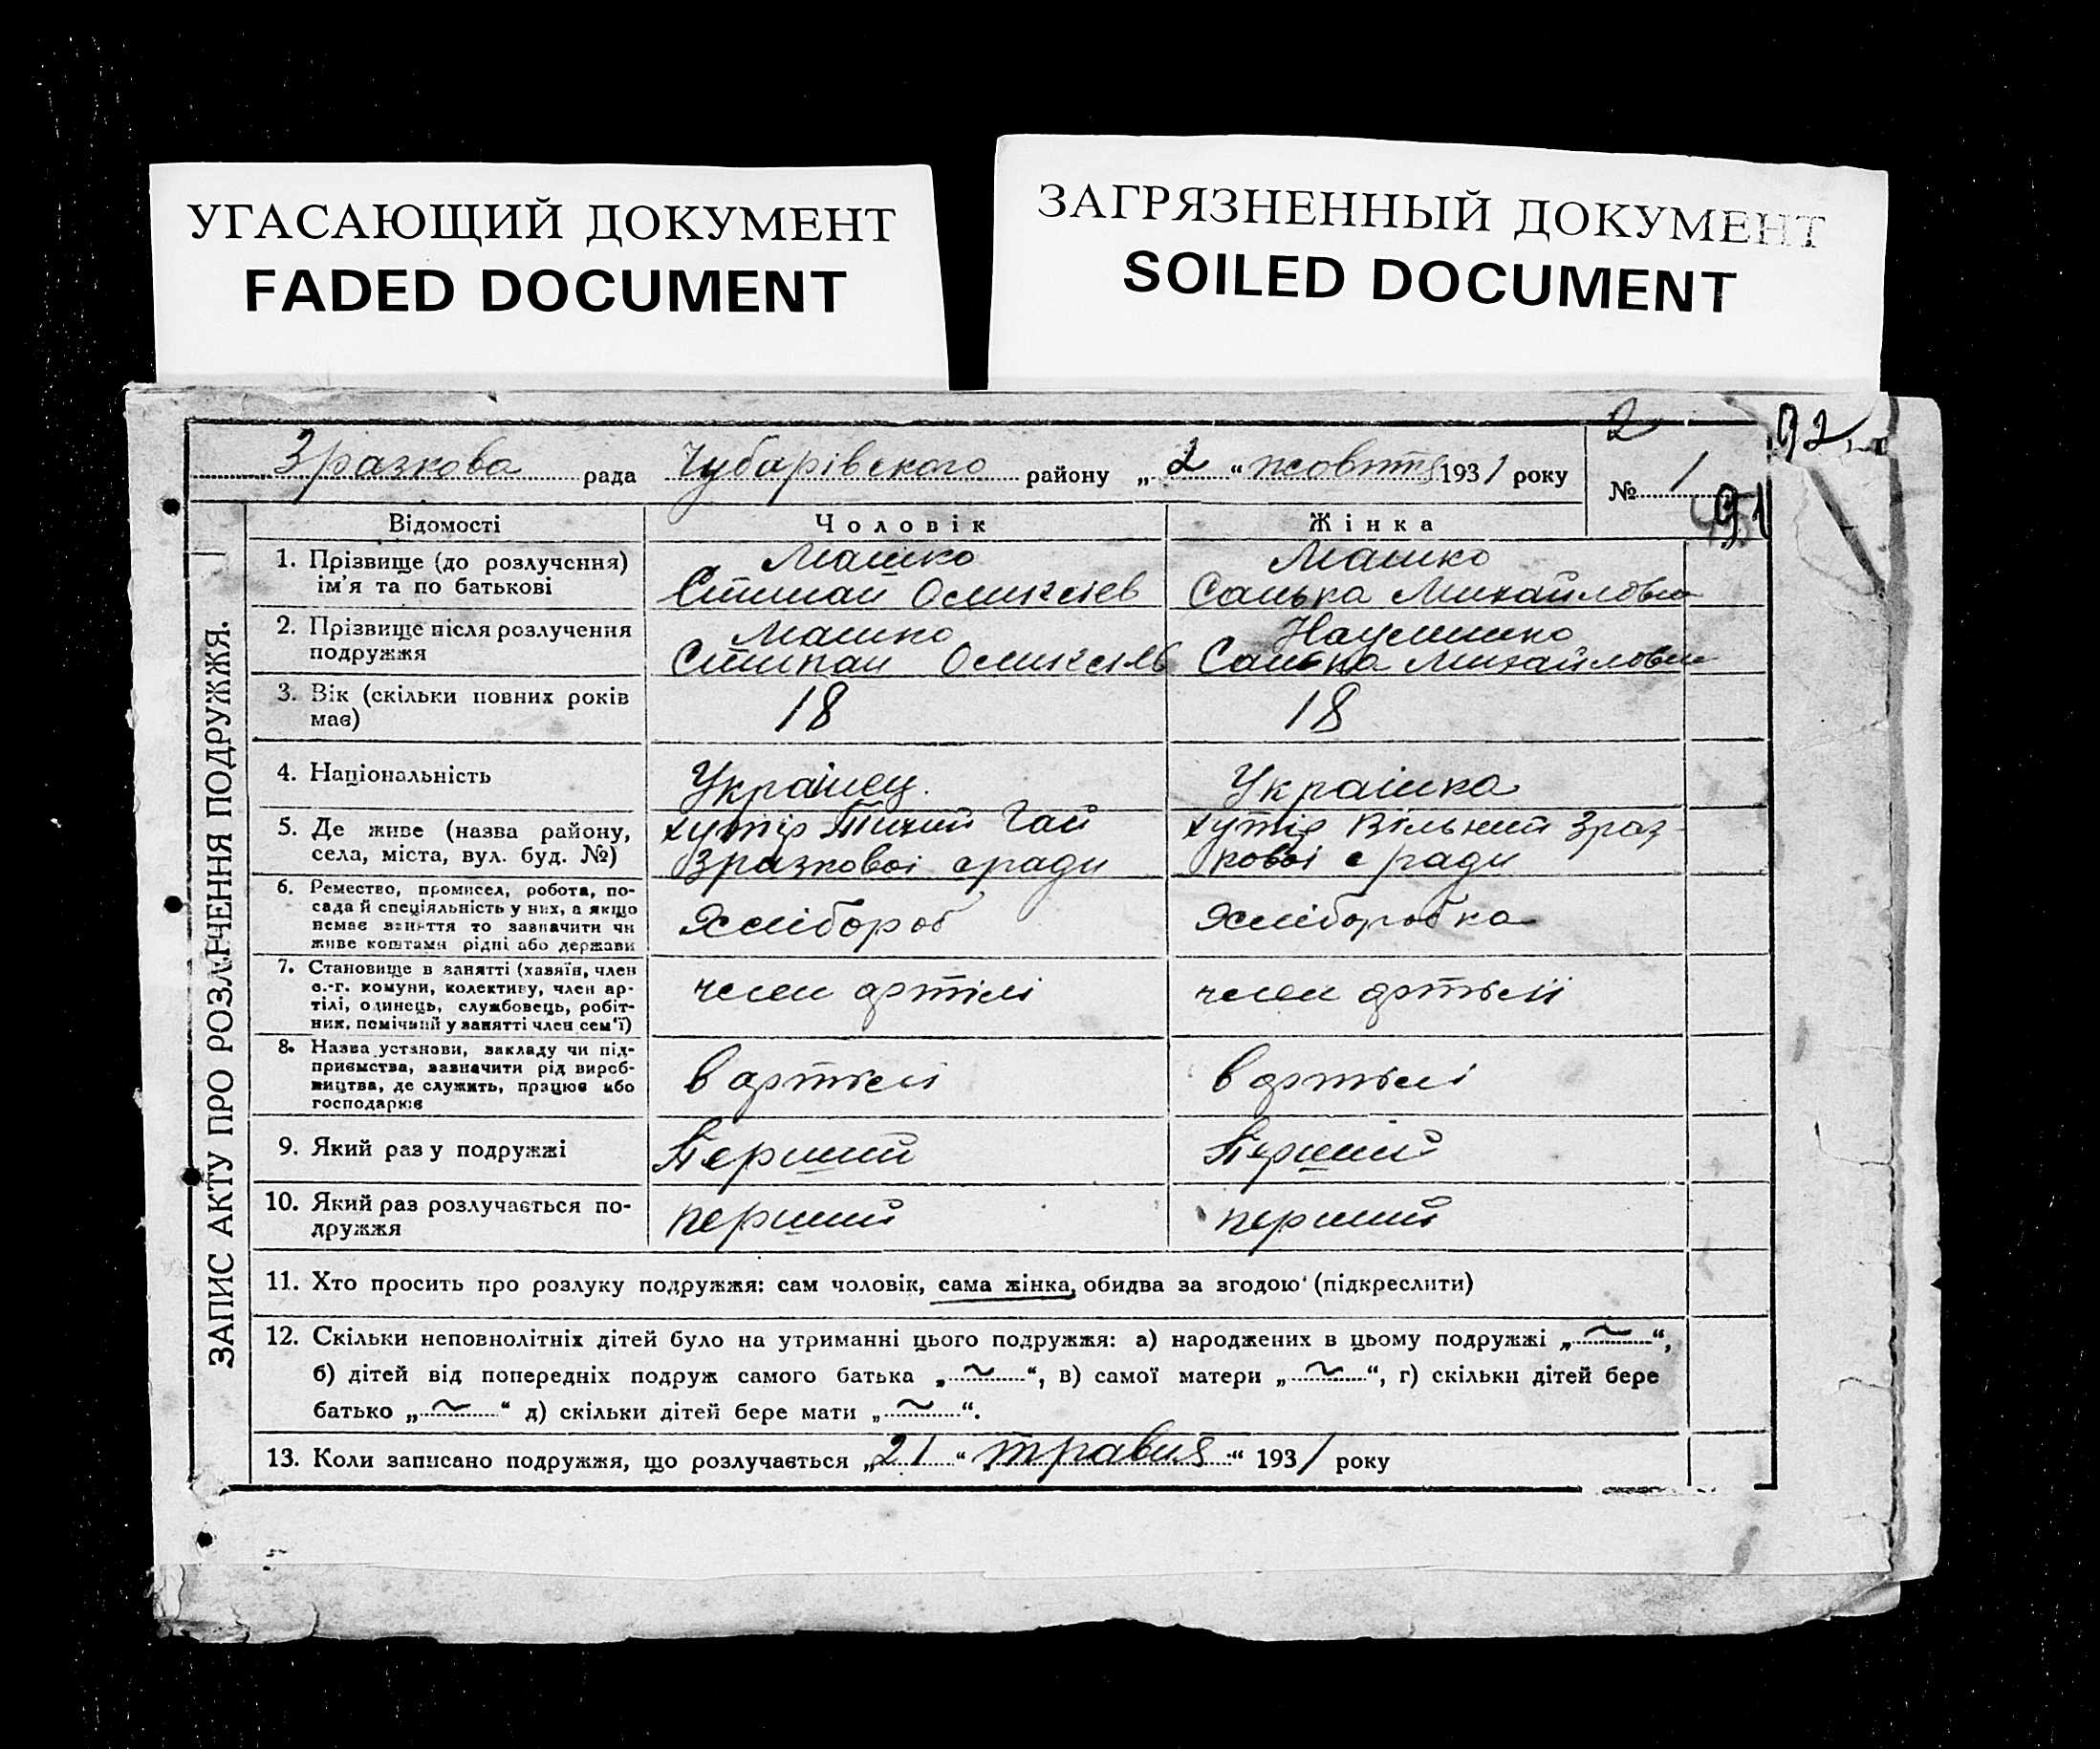 УГАСАЮЩИЙ ДОКУМЕНТ
FADED DOCUMENT
ЗАГРЯЗНЕННЫЙ ДОКУМЕНТ
SOILED DOCUMENT
2
92
Зразкова рада Чубарівського району „2“ жовтня 1931 року
№ 1
91
ЗАПИС АКТУ ПРО РОЗЛУЧЕННЯ ПОДРУЖЖЯ.
Відомості Чоловік Жінка
1. Прізвище (до розлучення) ім'я та по батькові
Машко
Машко
Санька Михайловна
2. Прізвище після розлучення подружжя
Машко
Степан
Науменко
Санька Михайловна
3. Вік (скільки повних років має)
18
18
4. Національність
Українец
Українка
5. Де живе (назва району, села, міста, вул. буд. №)
хутір Тихий Гай
Зразковоі с ради
хутір Вільний Зраз-
ковоі с ради
6. Ремество, промисел, робота, по-
сада й спеціяльність у них, а якщо
немає заняття то зазначити чи
живе коштами рідні або держави
Хлібороб
Хлiборобка
7. Становище в занятті (хазяїн, член
с.-г. комуни, колективу, член ар-
тілі, одинець, службовець, робіт-
ник, помічний у занятті член сем'ї)
член артілі
член артьлі
8. Назва установи, закладу чи під-
приємства, зазначити рід вироб-
ництва, де служить, працює або
господарює
в артілі
в артьлі
9. Який раз у подружжі
Перший
Перший
10. Який раз розлучається по-
дружжя
перший
перший
11. Хто просить про розлуку подружжя: сам чоловік, сама жінка, обидва за згодою (підкреслити)
12. Скільки неповнолітніх дітей було на утриманні цього подружжя: а) народжених в цьому подружжі „~“,
б) дітей від попередніх подруж самого батька „~“, в) самої матери „~“, г) скільки дітей бере
батько „~“ д) скільки дітей бере мати „~“.
13. Коли записано подружжя, що розлучається „21“ травня “ 1931 року